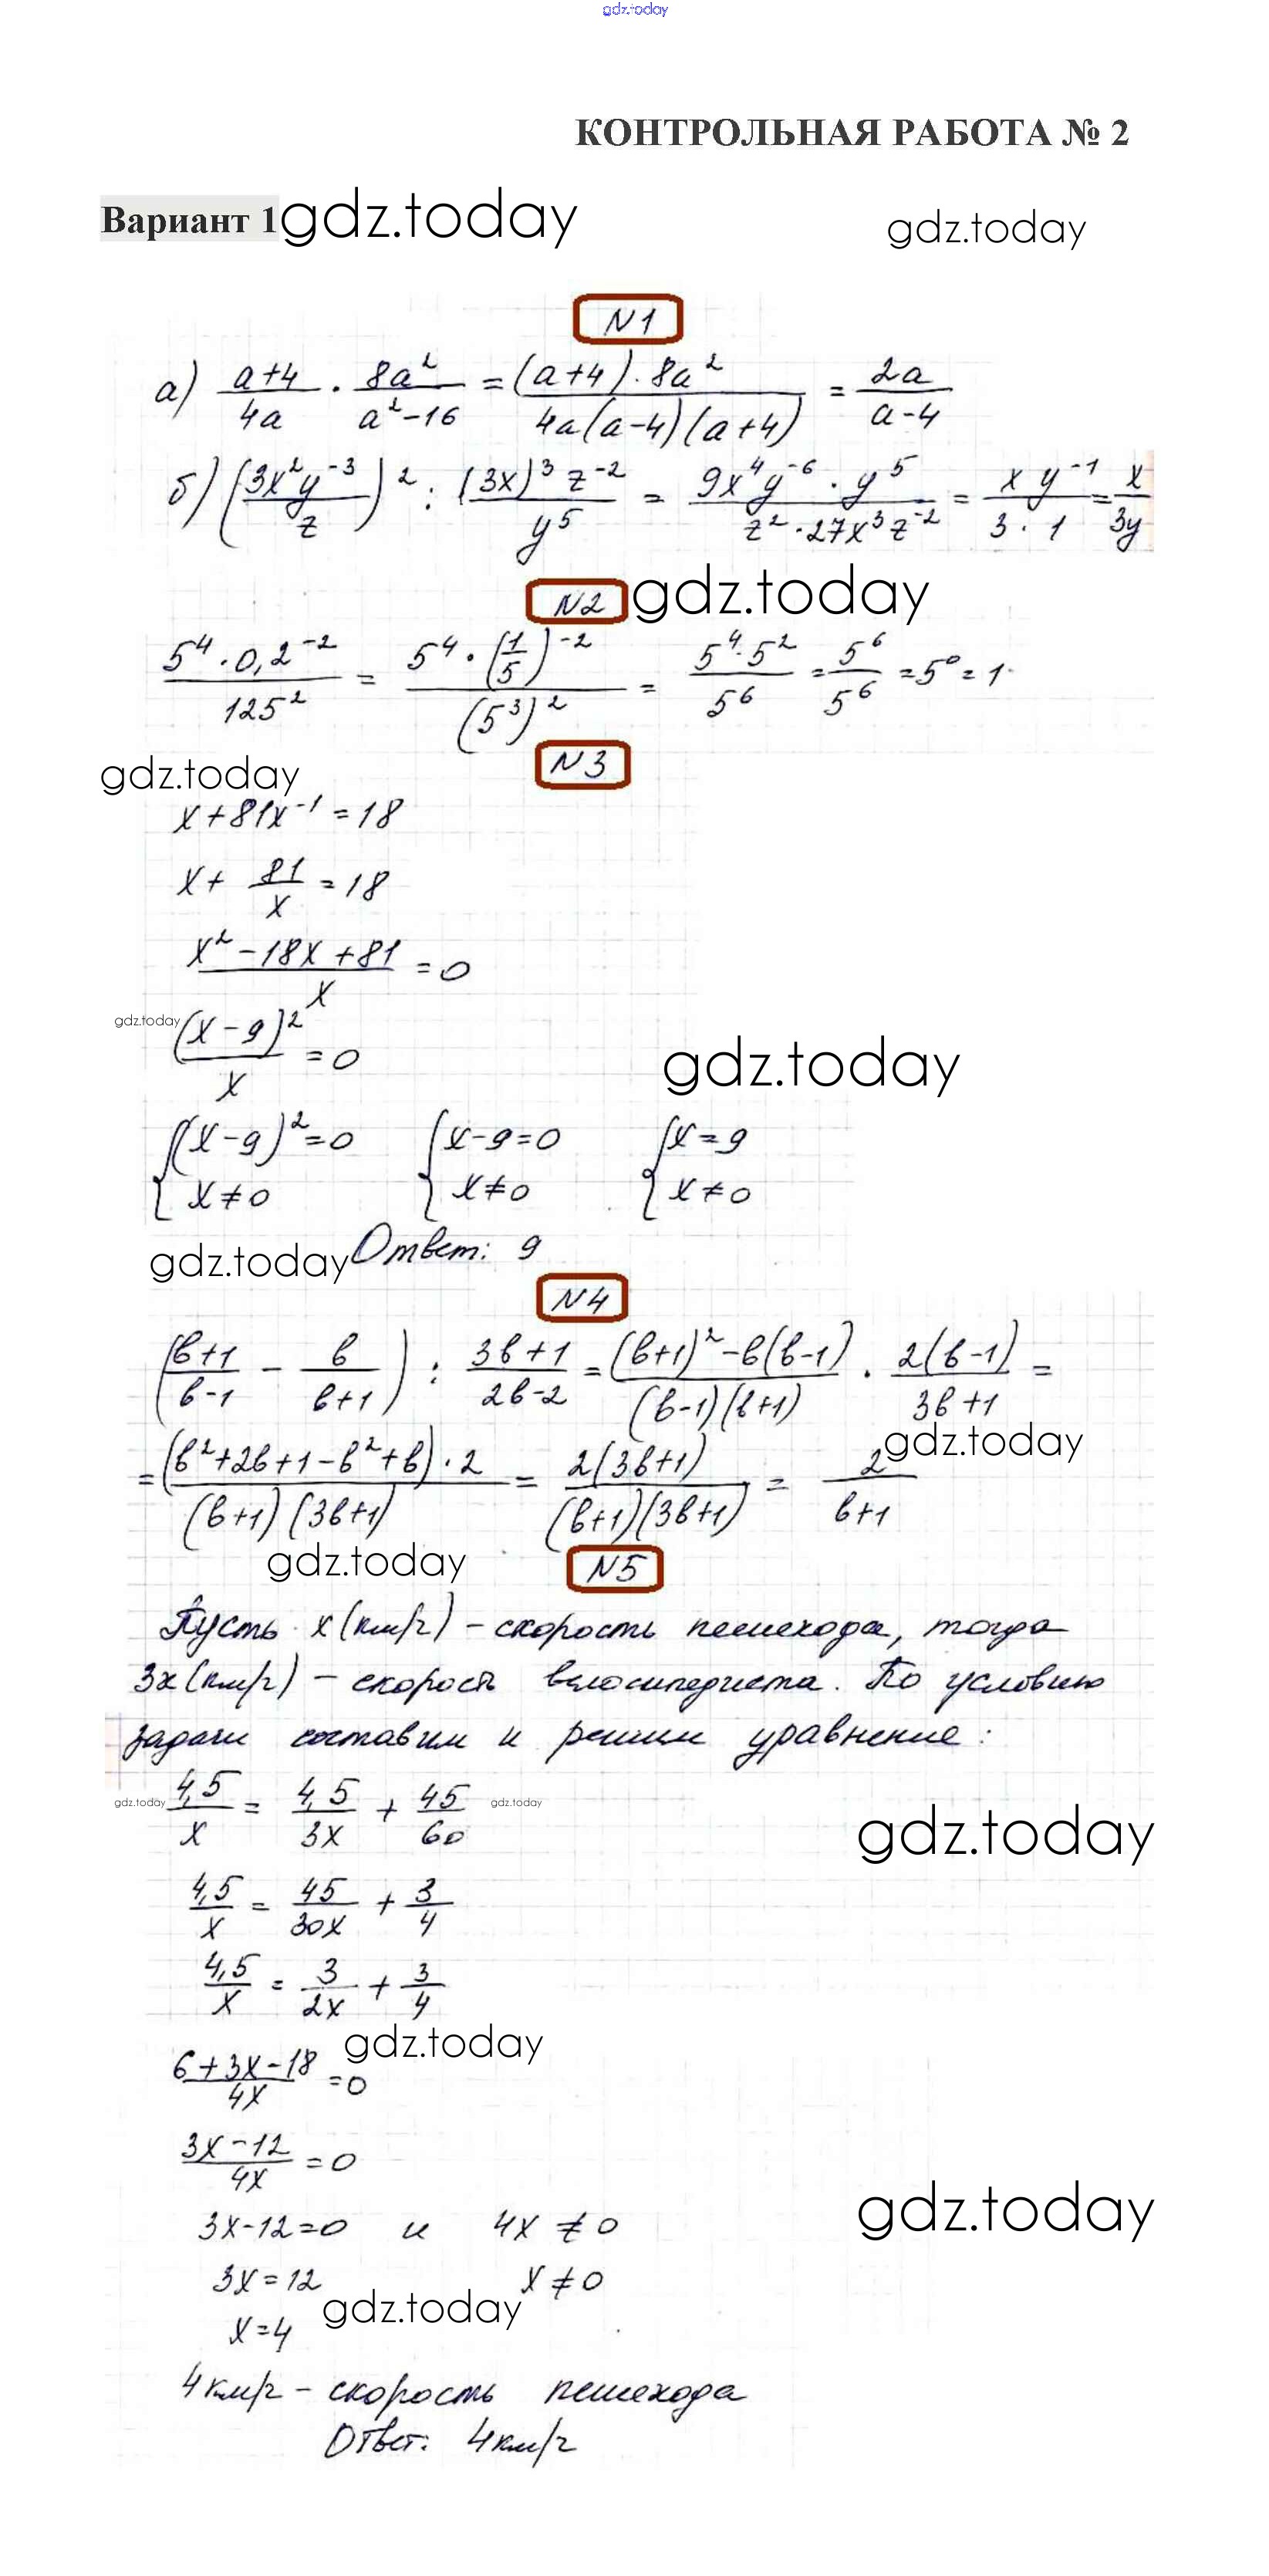 gdz.today
КОНТРОЛЬНАЯ РАБОТА № 2
Вариант 1 gdz.today gdz.today
N1
а) (a+4)/(4a) · (8a²)/(a²-16) = ((a+4)·8a²)/(4a(a-4)(a+4)) = (2a)/(a-4)
б) ((3x²y⁻³)/z)² : ((3x)³z⁻²)/(y⁵) = (9x⁴y⁻⁶·y⁵)/(z²·27x³z⁻²) = (xy⁻¹)/(3·1) = x/(3y)
N2 gdz.today
(5⁴·0,2⁻²)/(125²) = (5⁴·(1/5)⁻²)/((5³)²) = (5⁴·5²)/(5⁶) = 5⁶/5⁶ = 5⁰ = 1
N3
gdz.today
x+81x⁻¹=18
x+ 81/x = 18
(x²-18x+81)/x = 0
gdz.today (x-9)²/x = 0
gdz.today
{(x-9)²=0 {x-9=0 {x=9
x≠0 x≠0 x≠0
gdz.today Ответ: 9
N4
((в+1)/(в-1) - в/(в+1)) : (3в+1)/(2в-2) = ((в+1)²-в(в-1))/((в-1)(в+1)) · (2(в-1))/(3в+1) =
= ((в²+2в+1-в²+в)·2)/((в+1)(3в+1)) = (2(3в+1))/((в+1)(3в+1)) = 2/(в+1) gdz.today
gdz.today N5
Пусть x (км/ч) – скорость пешехода, тогда
3x (км/ч) – скорость велосипедиста. По условию
задачи составим и решим уравнение:
gdz.today 4,5/x = 4,5/3x + 45/60 gdz.today
gdz.today
4,5/x = 45/30x + 3/4
4,5/x = 3/2x + 3/4
gdz.today
(6+3x-18)/4x = 0
(3x-12)/4x = 0
gdz.today
3x-12=0 и 4x≠0
3x=12 x≠0
gdz.today
x=4
4км/ч – скорость пешехода
Ответ: 4км/ч